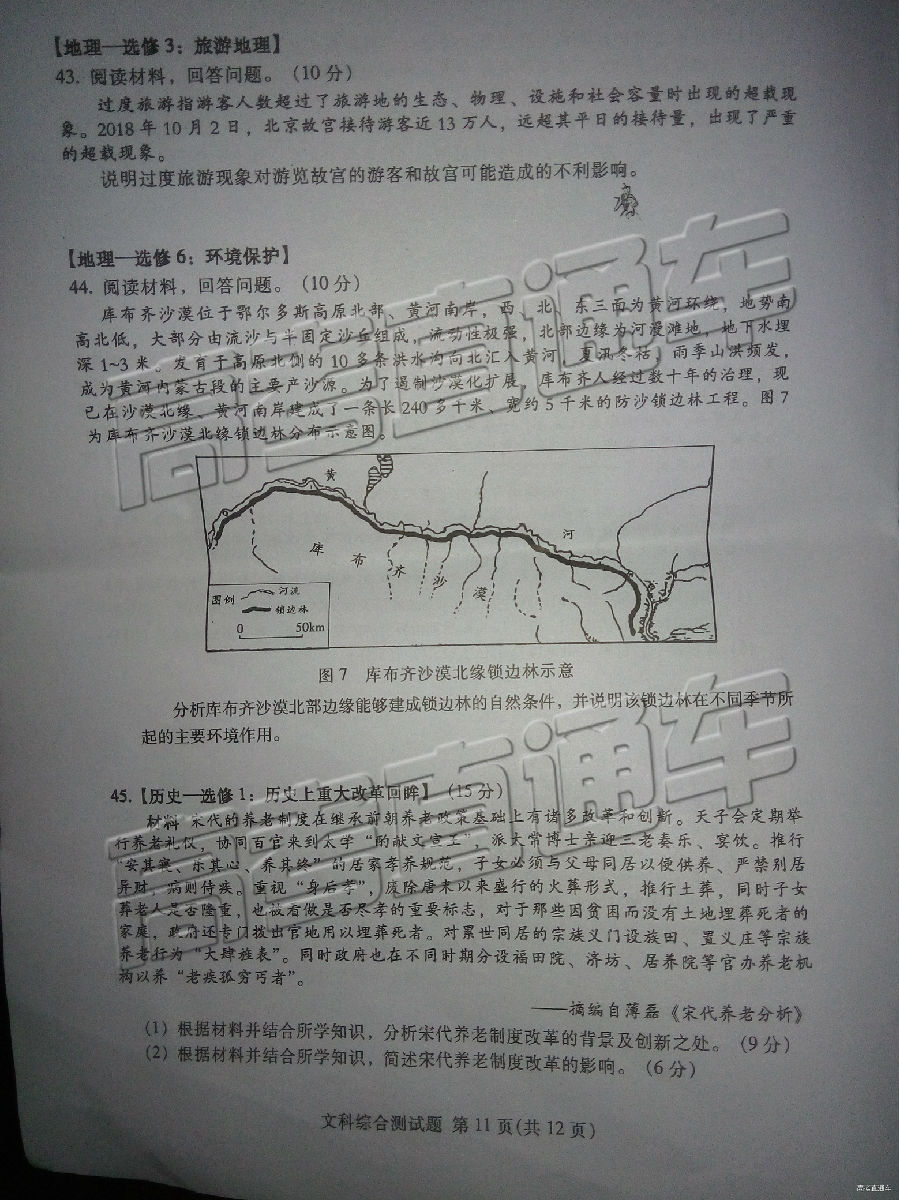 【地理—选修3：旅游地理】
43. 阅读材料，回答问题。（10分）
过度旅游指游客人数超过了旅游地的生态、物理、设施和社会容量时出现的超载现
象。2018年10月2日，北京故宫接待游客近13万人，远超其平日的接待量，出现了严重
的超载现象。
说明过度旅游现象对游览故宫的游客和故宫可能造成的不利影响。
【地理—选修6：环境保护】
44. 阅读材料，回答问题。（10分）
库布齐沙漠位于鄂尔多斯高原北部、黄河南岸，西、北、东三面为黄河环绕，地势南
高北低，大部分由流沙与半固定沙丘组成，流动性极强，北部边缘为河漫滩地，地下水埋
深1~3米。发育于高原北侧的10多条洪水沟向北汇入黄河，夏汛冬枯，雨季山洪频发，
成为黄河内蒙古段的主要产沙源。为了遏制沙漠化扩展，库布齐人经过数十年的治理，现
已在沙漠北缘、黄河南岸建成了一条长240多千米、宽约5千米的防沙锁边林工程。图7
为库布齐沙漠北缘锁边林分布示意图。
黄
河
库布齐沙漠
图例
河流
锁边林
0 50km
图7 库布齐沙漠北缘锁边林示意
分析库布齐沙漠北部边缘能够建成锁边林的自然条件，并说明该锁边林在不同季节所
起的主要环境作用。
45.【历史—选修1：历史上重大改革回眸】（15分）
材料 宋代的养老制度在继承前朝养老政策基础上有诸多改革和创新。天子会定期举
行养老礼仪，协同百官来到太学“酌献文宣王”，派太常博士亲迎三老奏乐、宴饮。推行
“安其寝、乐其心、养其终”的居家孝养规范，子女必须与父母同居以便供养、严禁别居
异财，病则侍疾。重视“身后孝”，废除唐末以来盛行的火葬形式，推行土葬，同时子女
葬老人是否隆重，也被看做是否尽孝的重要标志，对于那些因贫困而没有土地埋葬死者的
家庭，政府还专门拨出官地用以埋葬死者。对累世同居的宗族义门设族田、置义庄等宗族
养老行为“大肆旌表”。同时政府也在不同时期分设福田院、济坊、居养院等官办养老机
构以养“老疾孤穷丐者”。
——摘编自薄磊《宋代养老分析》
（1）根据材料并结合所学知识，分析宋代养老制度改革的背景及创新之处。（9分）
（2）根据材料并结合所学知识，简述宋代养老制度改革的影响。（6分）
文科综合测试题 第11页(共12页)
高考直通车
高考直通车
高考直通车